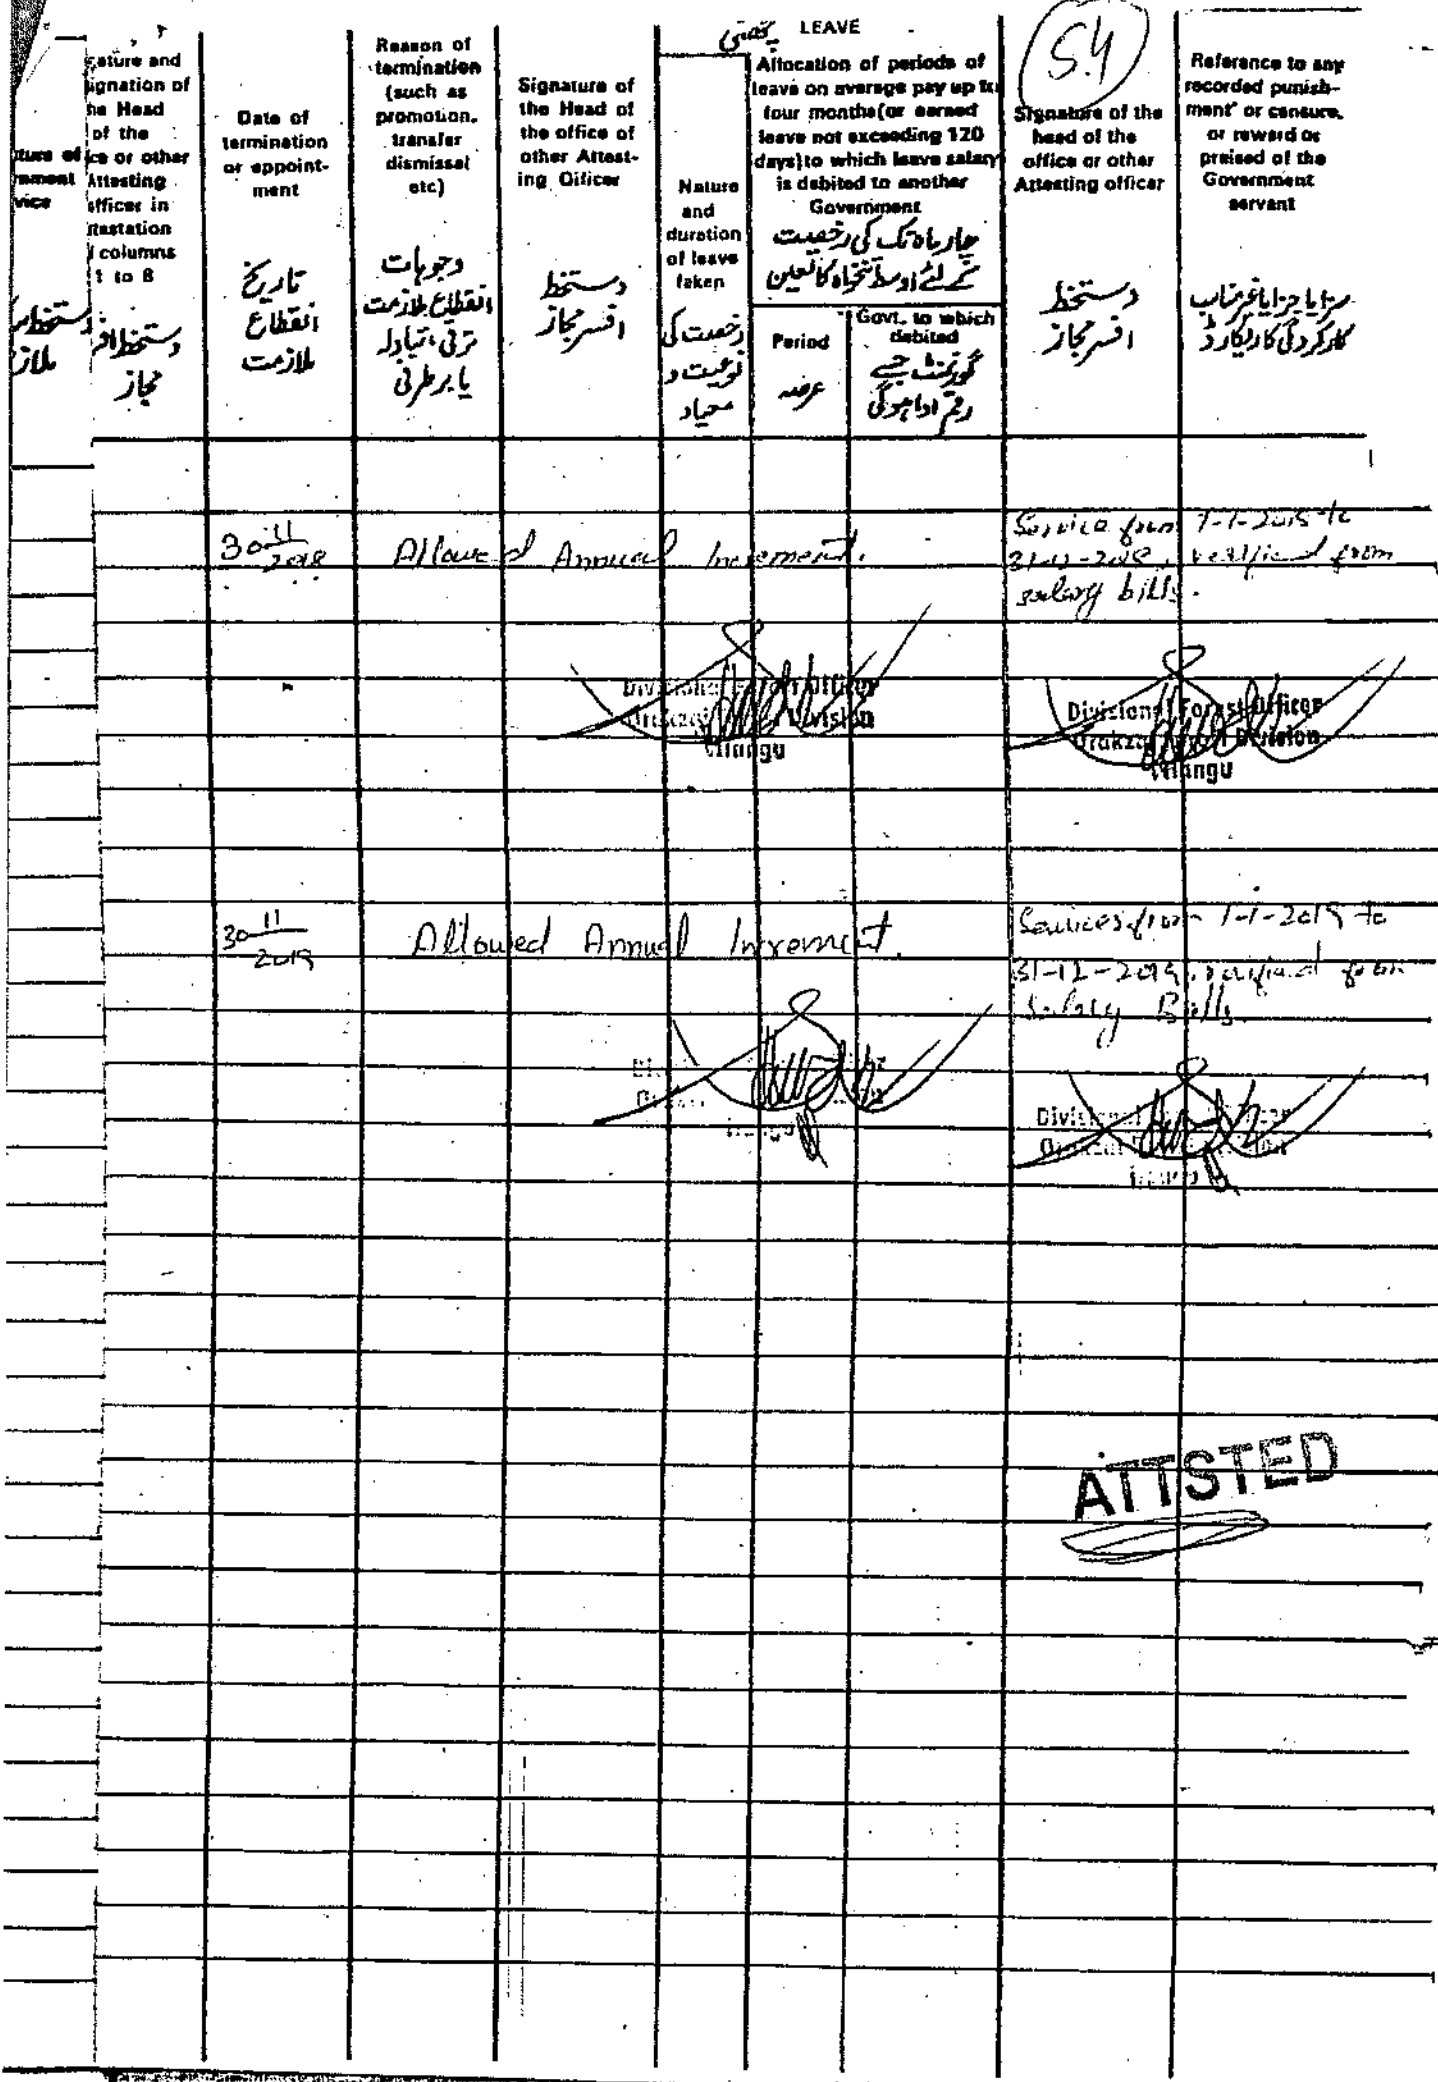 LEAVE
54
ature and
ignation of
he Head
of the
ce or other
Attesting
officer in
ttestation
columns
1 to 8
دستخط افسر
مجاز
ture of
rnment
vice
دستخط
ملاز
Date of
termination
or appoint-
ment
تاریخ
انقطاع
ملازمت
Reason of
termination
(such as
promotion,
transfer
dismissal
etc)
وجوہات
انقطاع ملازمت
ترقی، تبادلہ
یا برطرفی
Signature of
the Head of
the office of
other Attest-
ing Officer
دستخط
افسر مجاز
Nature
and
duration
of leave
taken
رخصت کی
نوعیت و
معیاد
Allocation of periods of
leave on average pay up to
four months(or earned
leave not exceeding 120
days)to which leave salary
is debited to another
Government
چار ماہ تک کی رخصت
کے لئے اوسط تنخواہ کا تعین
Period
عرصہ
Govt. to which
debited
گورنمنٹ جسے
رقم ادا ہوگی
Signature of the
head of the
office or other
Attesting officer
دستخط
افسر مجاز
Reference to any
recorded punish-
ment or censure,
or reward or
praised of the
Government
servant
سزا یا جزا یا غیر مناسب
کارکردگی کا ریکارڈ
30-11
2018
Allowed Annual Increment.
Service from 1-1-2018 to
31-12-2018, verified from
salary bills.
Divisional Forest Officer
Orakzai Forest Division
Hangu
Divisional Forest Officer
Orakzai Forest Division
Hangu
30-11
2019
Allowed Annual Increment.
Services from 1-1-2019 to
31-12-2019, verified from
Salary Bills.
Hangu
Divisional
Orakzai
ATTSTED